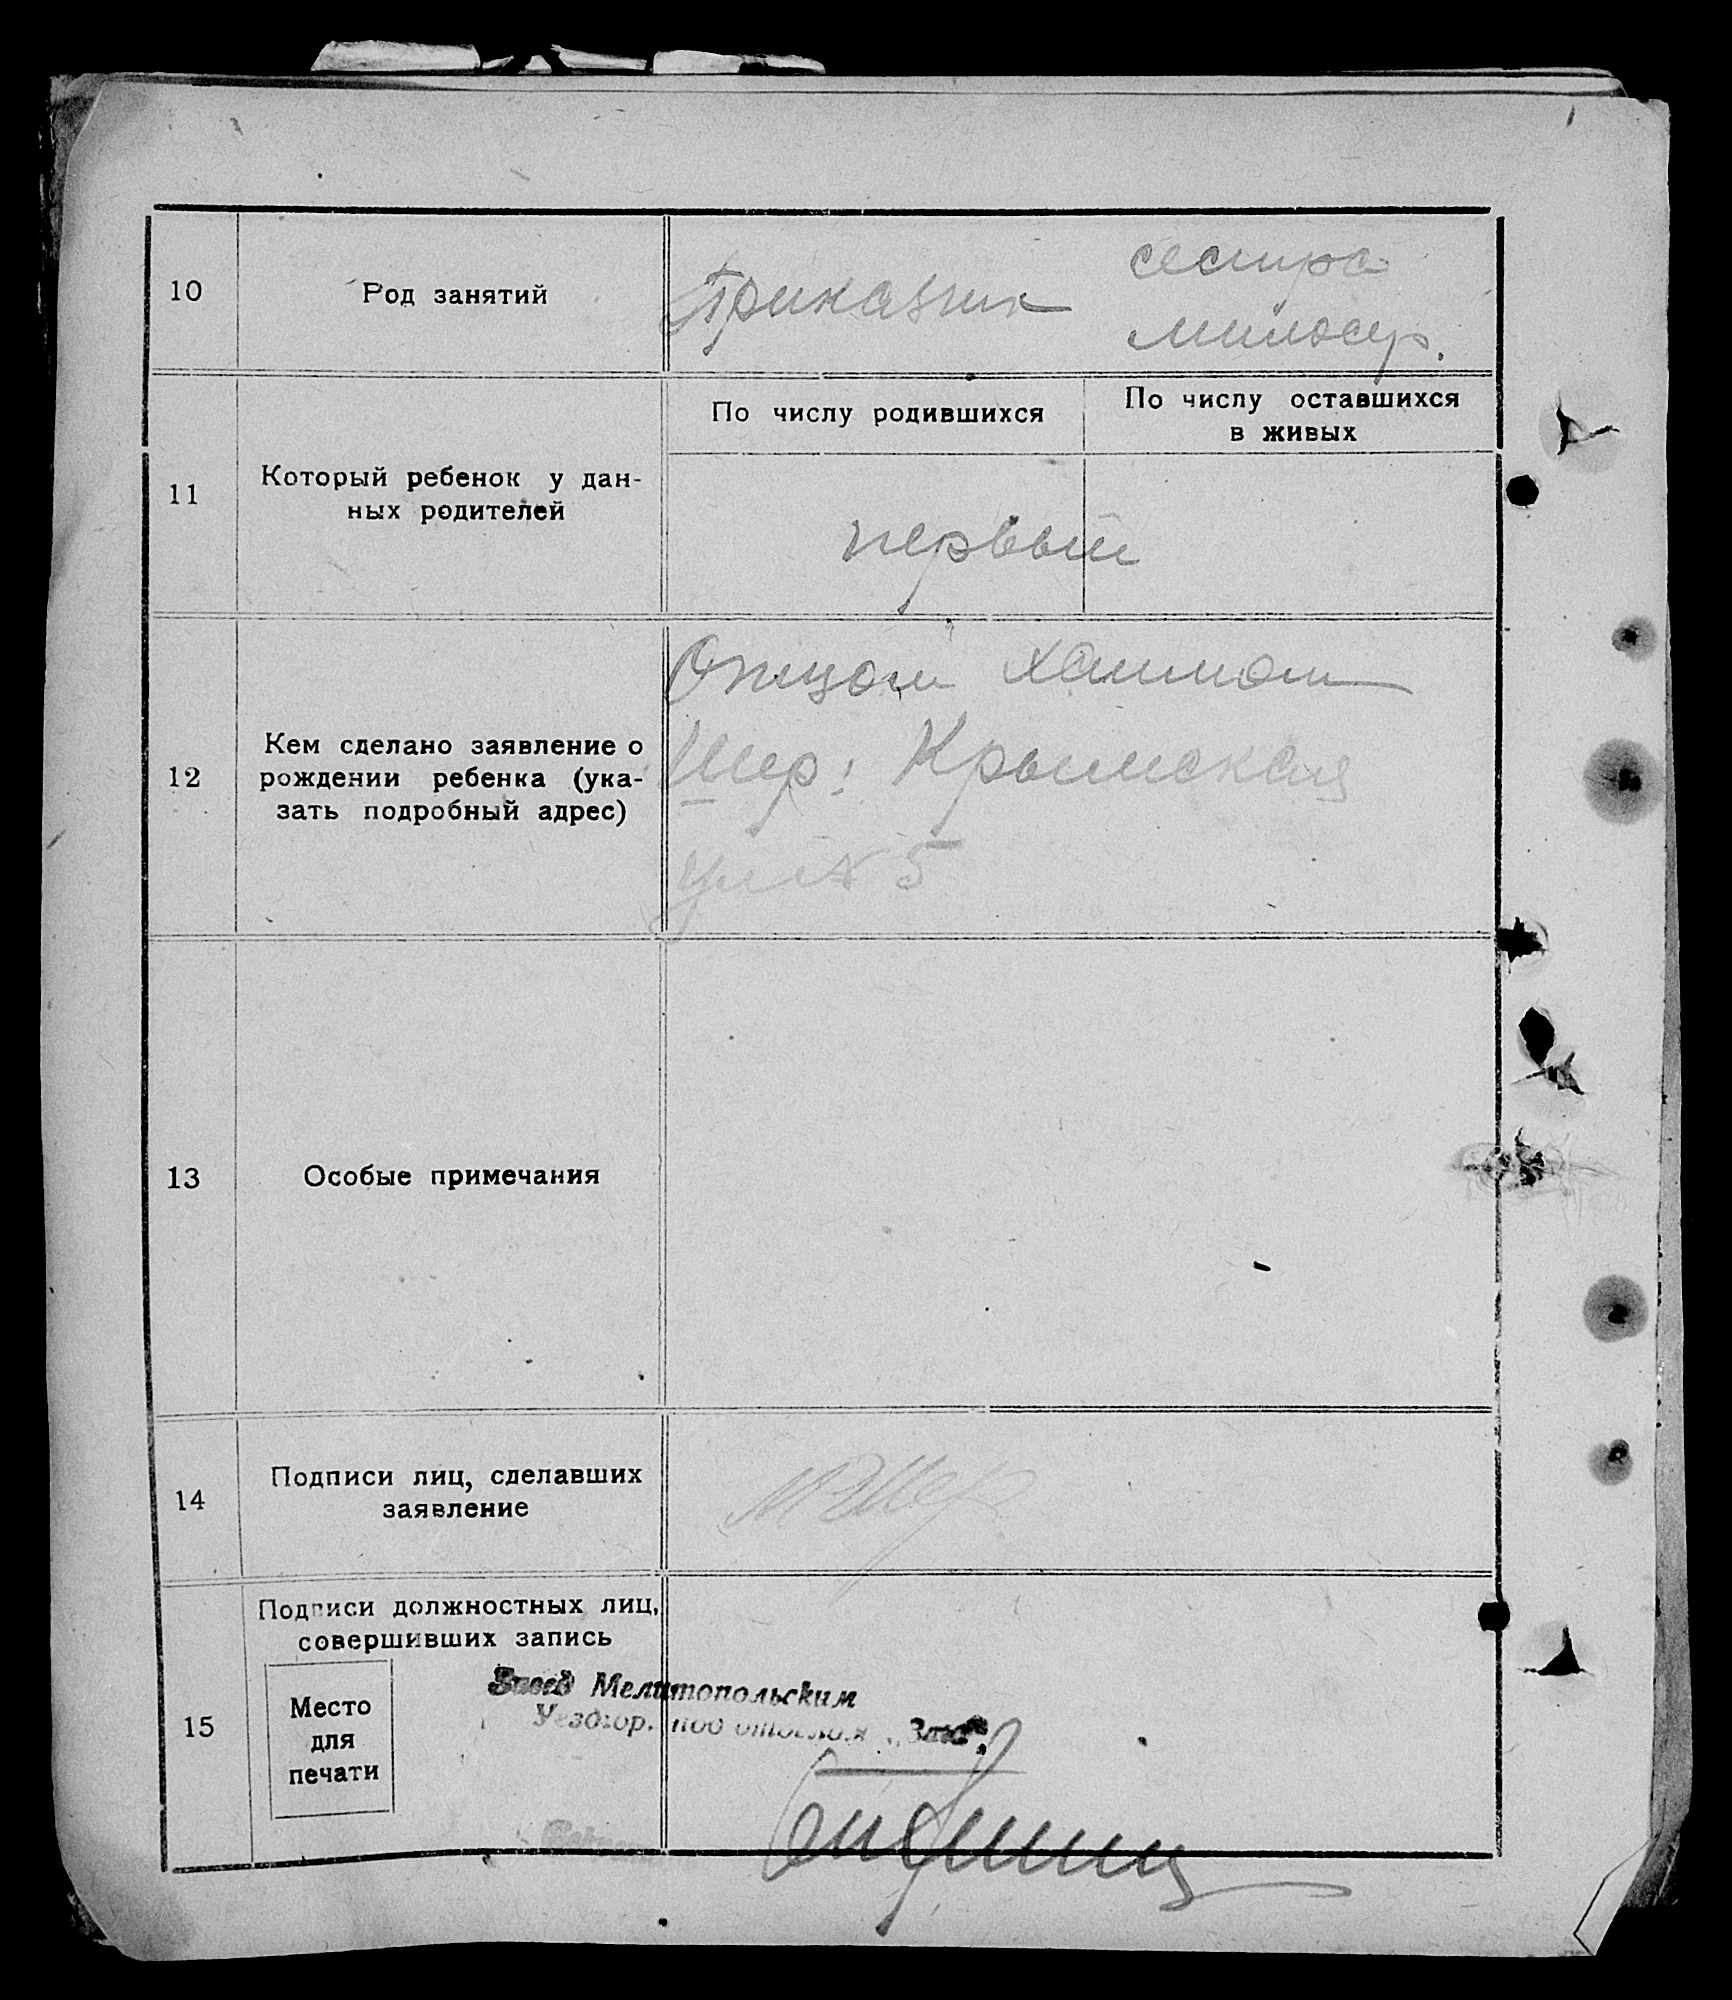 10
Род занятий
Приказчик
сестра
милосер.
11
Который ребенок у дан-
ных родителей
По числу родившихся
По числу оставшихся
в живых
первый
12
Кем сделано заявление о
рождении ребенка (ука-
зать подробный адрес)
Отцом Хаимом
Шер: Крымская
ул № 5
13
Особые примечания
14
Подписи лиц, сделавших
заявление
Шер
15
Подписи должностных лиц,
совершивших запись
Место
для
печати
Завед Мелитопольским
Уездгор. под отделом „Загс“.